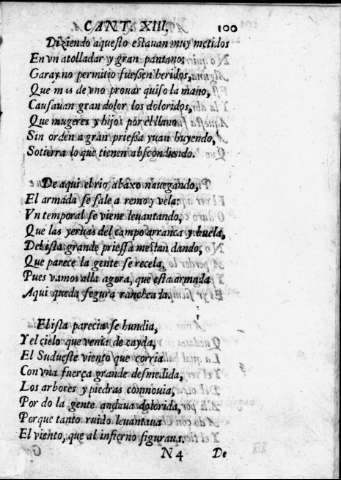 CANT. XIII. 100
Diziendo aquesto estauan muy metidos
En vn atolladar y gran pantano:
Garay no permitio fuessen heridos,
Que mas de vno prouar quiso la mano,
Causauan gran dolor los doloridos,
Que mugeres y hijos por el llano
Sin orden a gran priessa yuan huyendo,
Sotierra lo que tienen abscondiendo.
De aqui el rio abaxo nauegando,
El armada se sale a remo y vela:
Vn temporal se viene leuantando,
Que las yeruas del campo arranca y buela,
De la grande priessa mestan dando,
Que parece la gente se recela,
Pues vamos alla agora, que esta armada
Aqui queda segura rancheada.
El isla parecia se hundia,
Y el cielo que venia de cayda,
El Sudueste viento que corria
Con vna fuerça grande desmedida,
Los arbores y piedras commouia,
Por do la gente andaua dolorida,
Porque tanto ruido leuantaua
El viento, que al infierno figuraua.
N 4 De